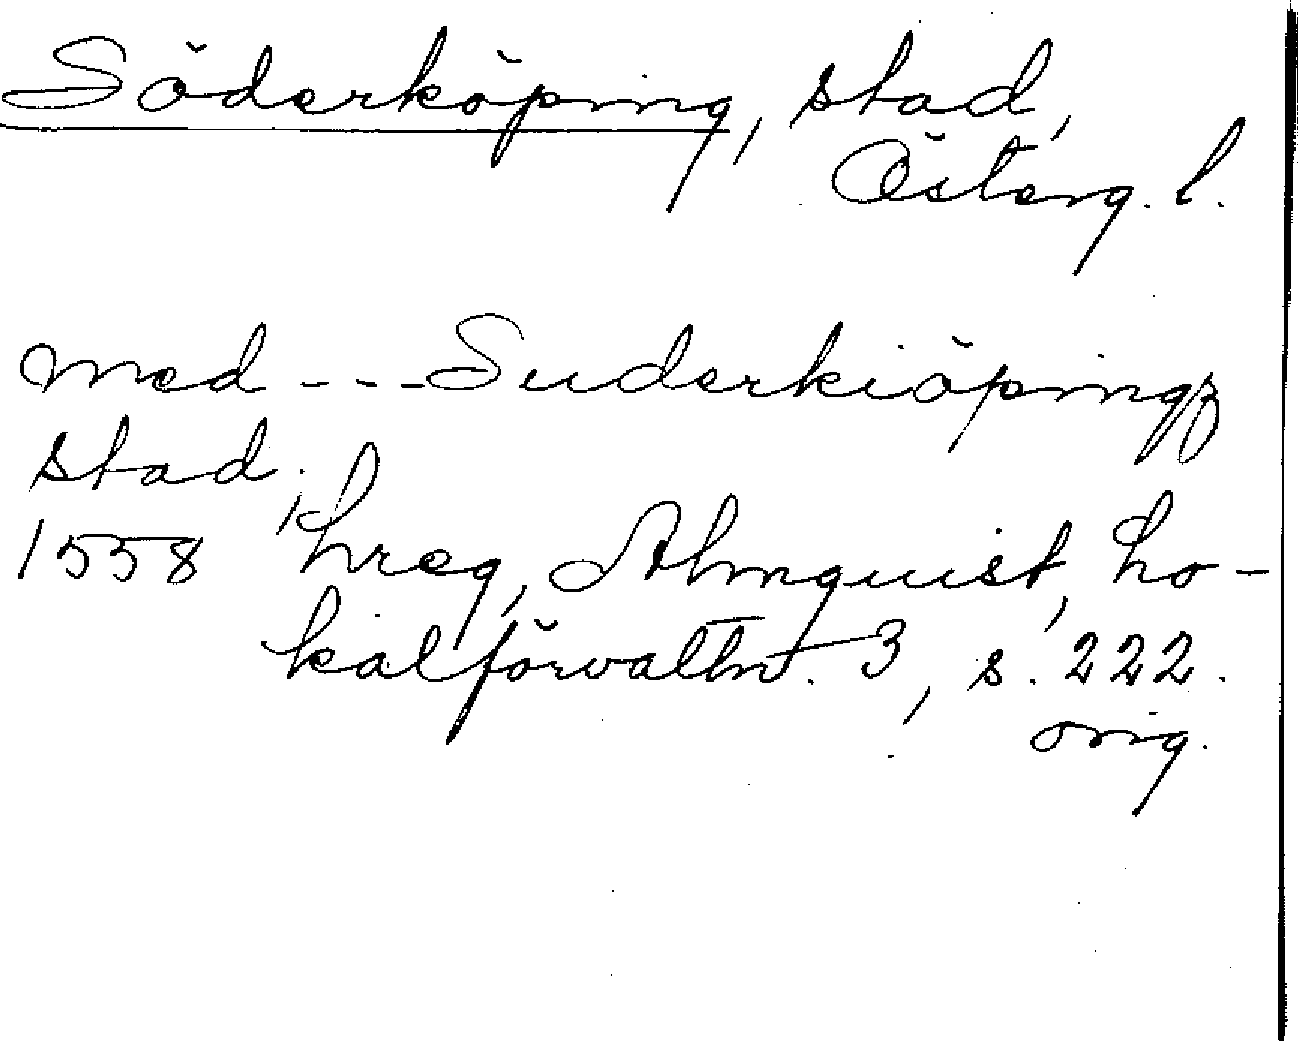 Söderköping, stad,
Österg. l.
med --- Suderkiöpingz
stad,
1558 Lreg, Almquist, Lo-
kalförvaltn. 3, s. 222.
orig.